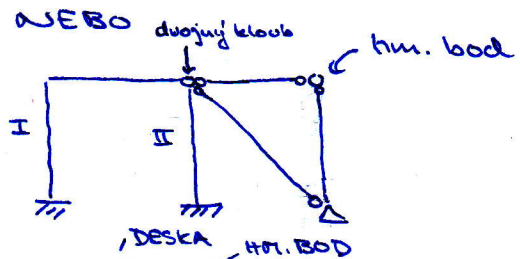 NEBO
dvojný kloub
hm. bod
I
II
, DESKA , HM. BOD